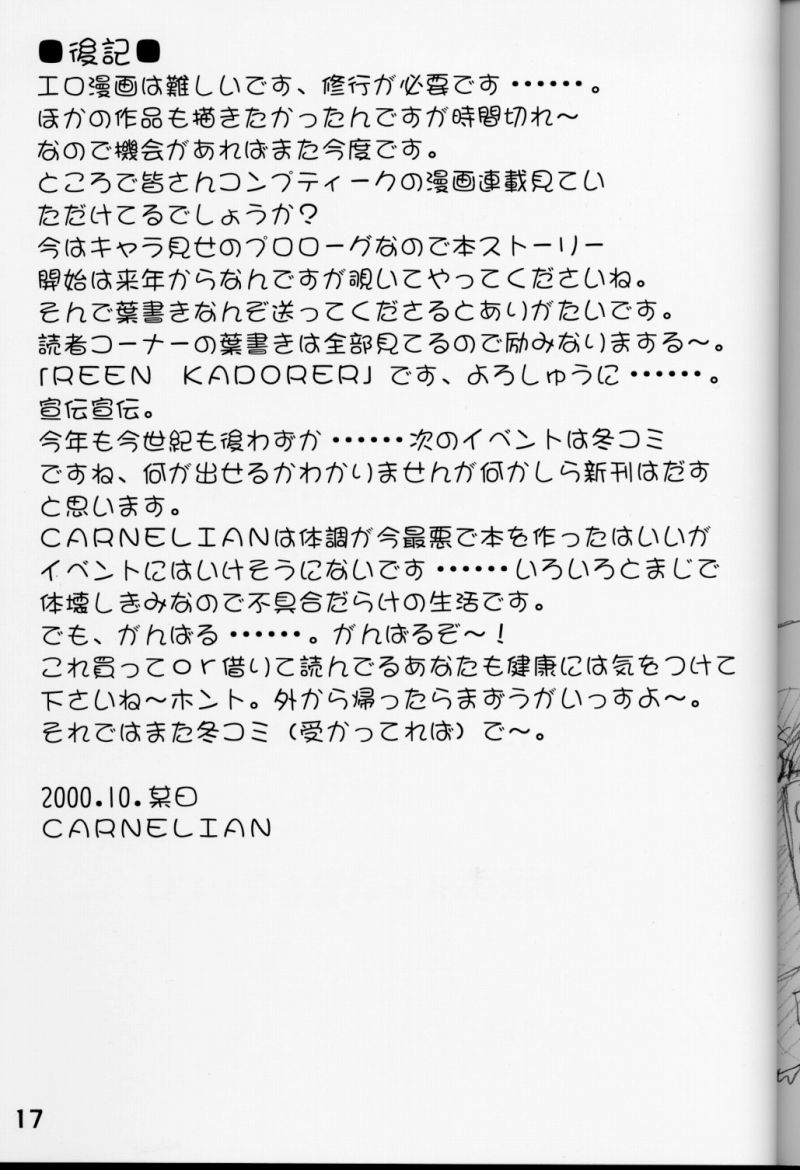 ■後記■
エロ漫画は難しいです、修行が必要です・・・・・・。
ほかの作品も描きたかったんですが時間切れ～
なので機会があればまた今度です。
ところで皆さんコンプティークの漫画連載見てい
ただけてるでしょうか？
今はキャラ見せのプロローグなので本ストーリー
開始は来年からなんですが覗いてやってくださいね。
そんで葉書きなんぞ送ってくださるとありがたいです。
読者コーナーの葉書きは全部見てるので励みなりまする～。
「REEN　KADORER」です、よろしゅうに・・・・・・。
宣伝宣伝。
今年も今世紀も後わずか・・・・・・次のイベントは冬コミ
ですね、何が出せるかわかりませんが何かしら新刊はだす
と思います。
CARNELIANは体調が今最悪で本を作ったはいいが
イベントにはいけそうにないです・・・・・・いろいろとまじで
体壊しぎみなので不具合だらけの生活です。
でも、がんばる・・・・・・。がんばるぞ～！
これ買ってor借りて読んでるあなたも健康には気をつけて
下さいね～ホント。外から帰ったらまずうがいっすよ～。
それではまた冬コミ（受かってれば）で～。
2000.10.某日
CARNELIAN
17